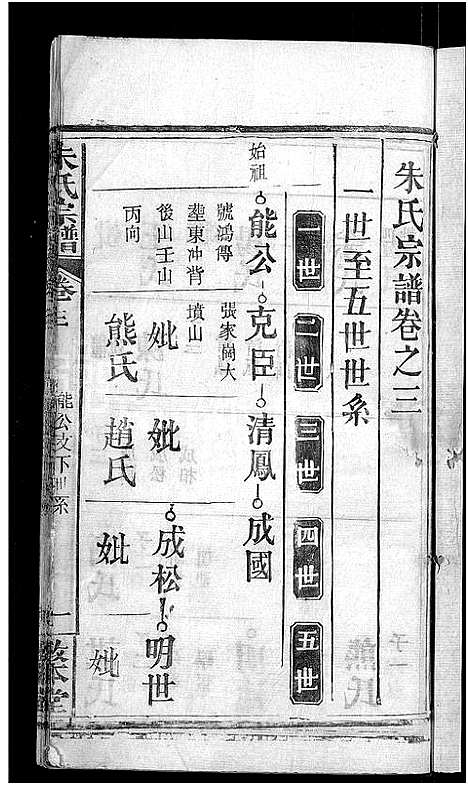 朱氏宗譜卷之三
一世至五世世系
一世 二世 三世 四世 五世
始祖 能公 克臣 清鳳 成國
號鴻傳 張家崗大
塟東冲背 墳山
後山壬山
丙向
成松 明世
妣 妣
熊氏 趙氏
妣 妣
朱氏宗譜 卷之三 能公支下世系 一